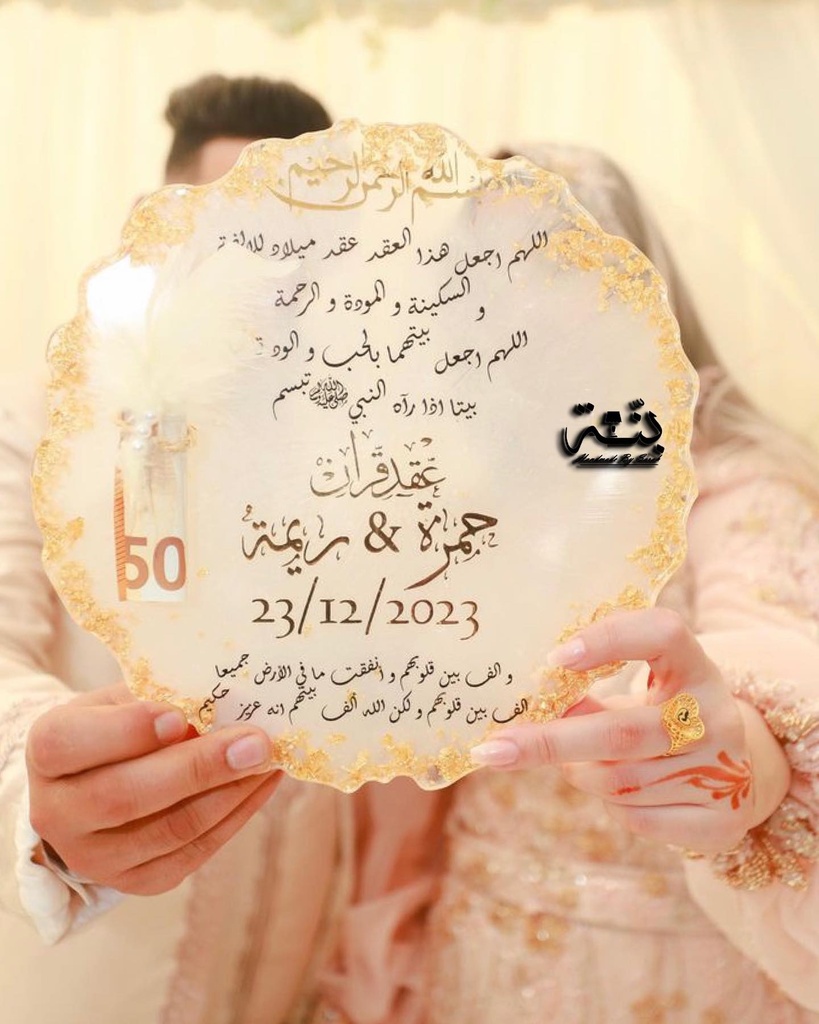 بسم الله الرحمن الرحيم
اللهم اجعل هذا العقد عقد ميلاد
و السكينة و المودة و الرحمة
اللهم اجعل بيتهما بالحب و الود
بيتا اذا رآه النبي ﷺ تبسم
عقد قران
حمزة & ريمة
23/12/2023
و الف بين قلوبهم و انفقت ما في الأرض جميعا
الف بين قلوبهم و لكن الله ألف بينهم انه عزيز حكيم
50